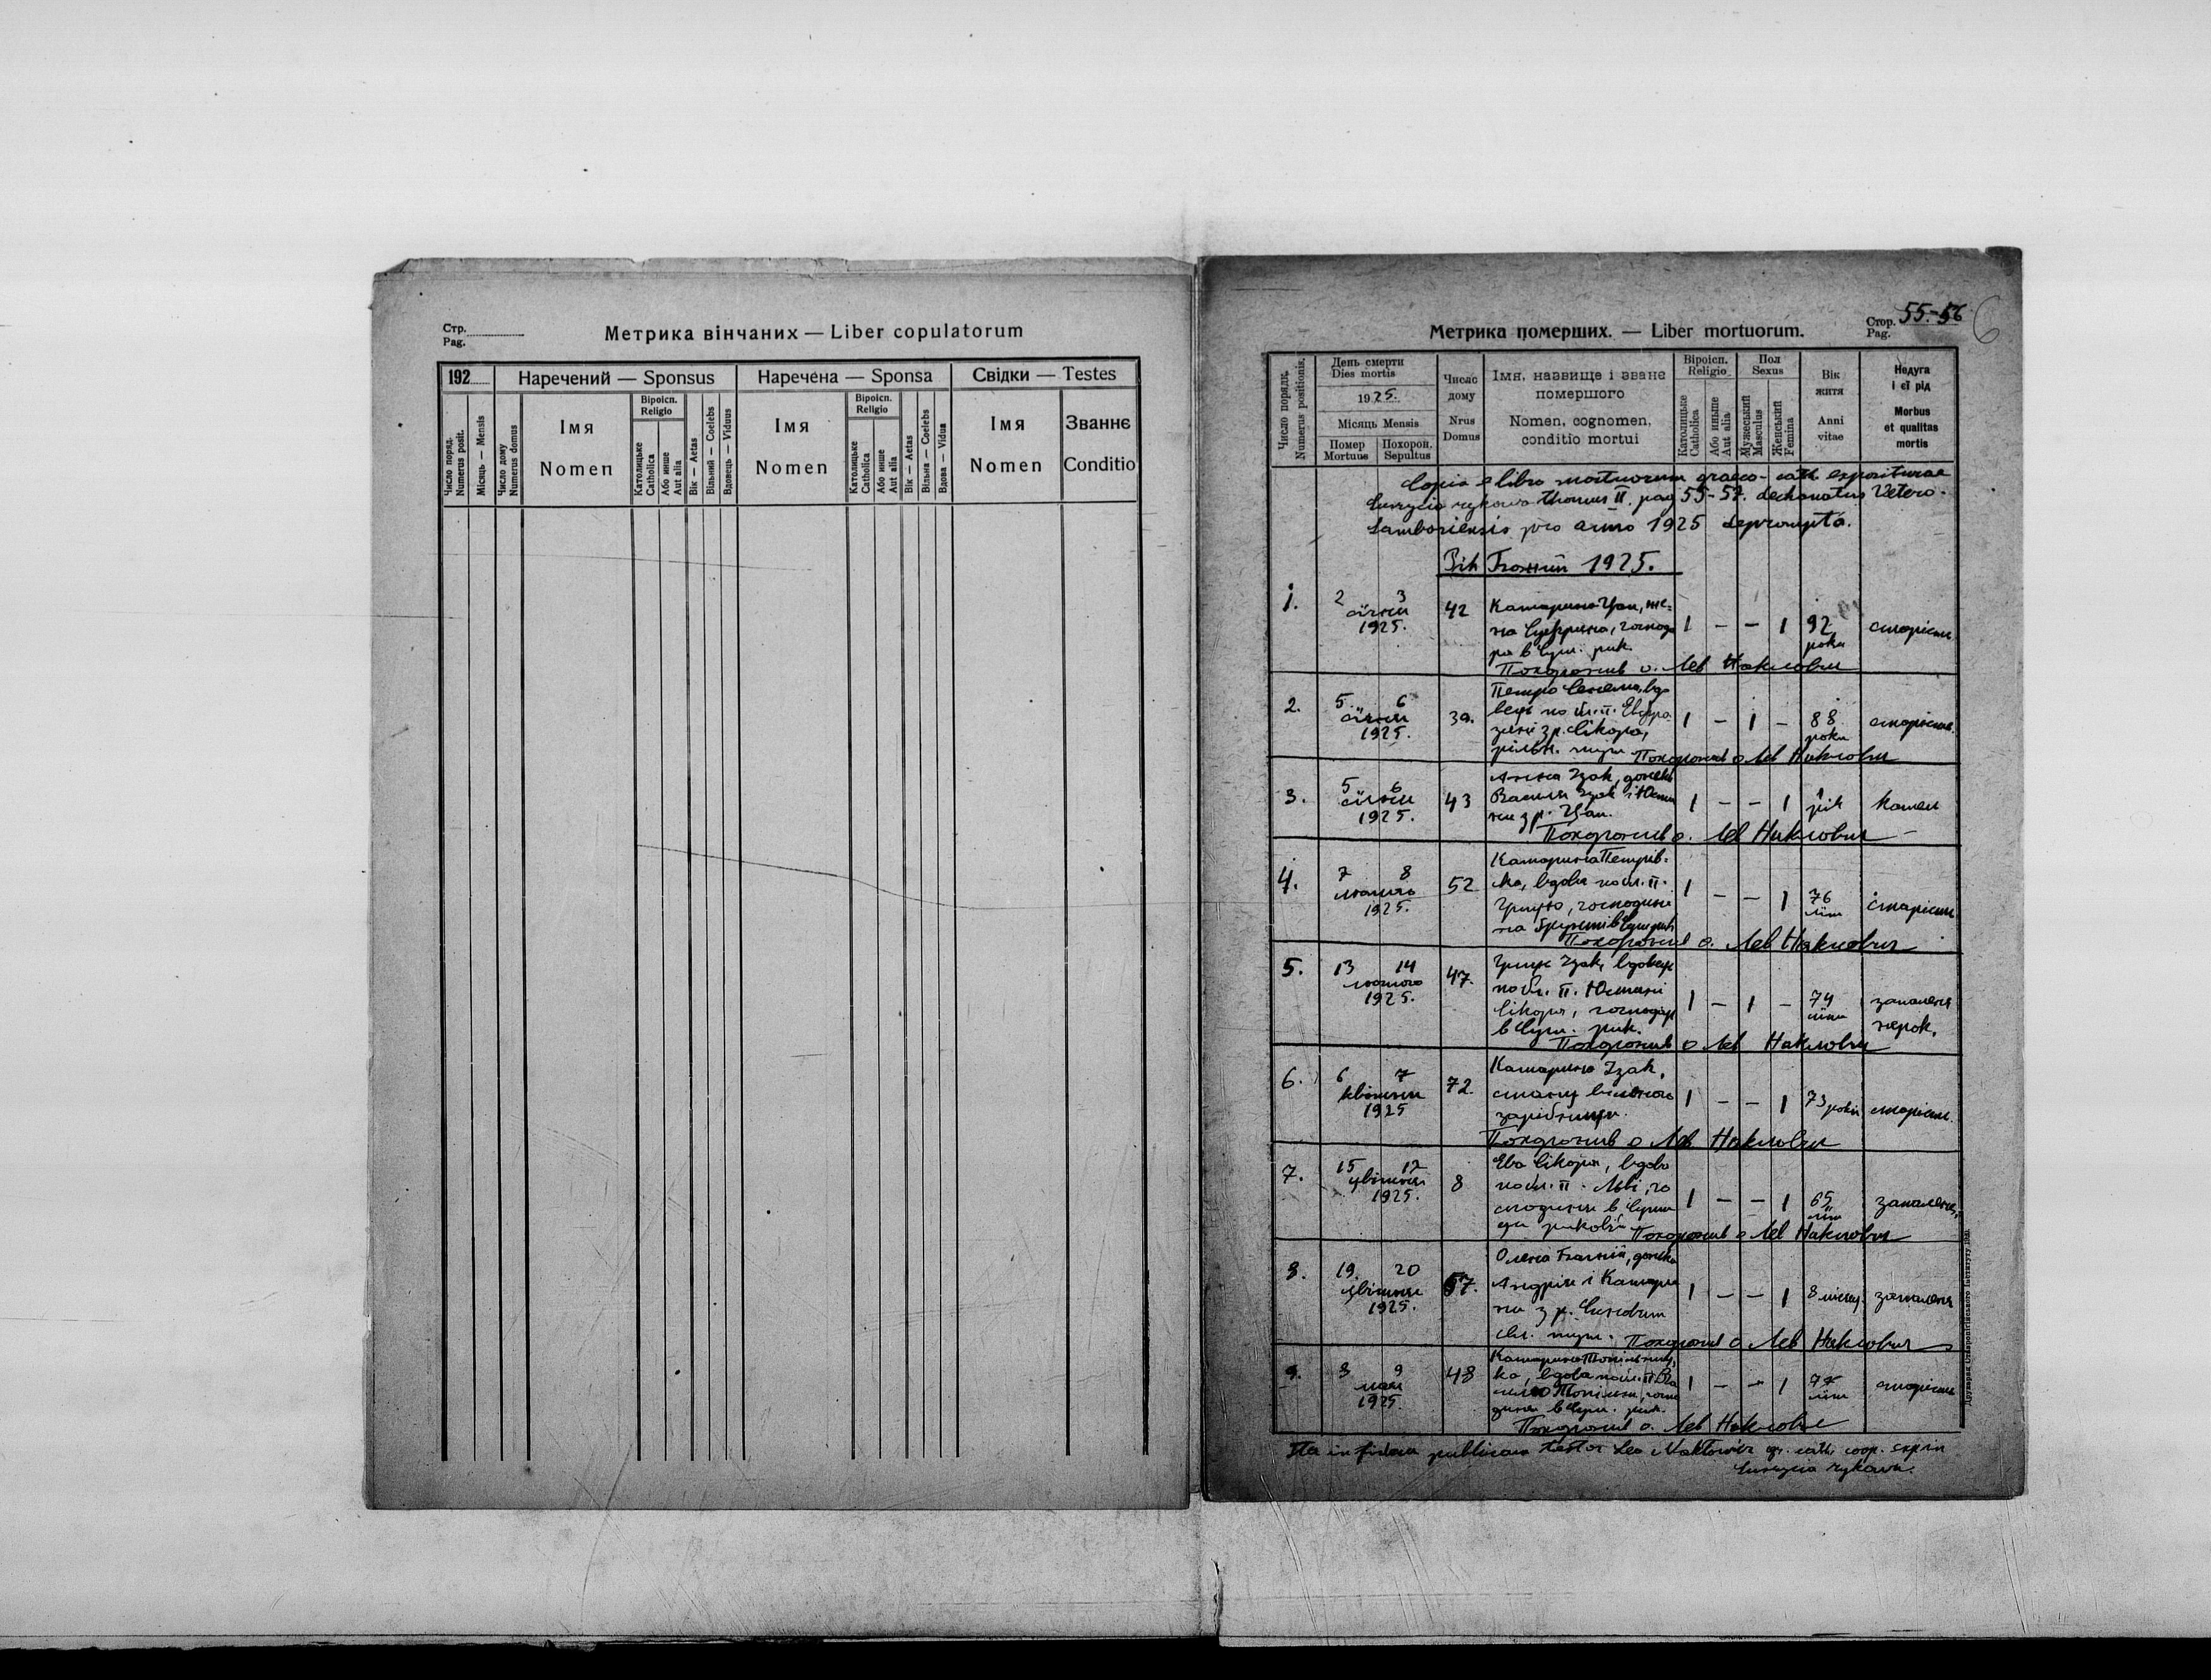 Стр.
Pag.
Метрика вінчаних — Liber copulatorum
192
Наречений — Sponsus
Наречена — Sponsa
Свідки — Testes
Число поряд.
Numerus posit.
Місяць — Mensis
Число дому
Numerus domus
Імя
Nomen
Віроісп.
Religio
Католицьке
Catholica
Або инше
Aut alia
Вік — Aetas
Вільний — Coelebs
Вдовець — Viduus
Імя
Nomen
Віроісп.
Religio
Католицьке
Catholica
Або инше
Aut alia
Вік — Aetas
Вільна — Coelebs
Вдова — Vidua
Імя
Nomen
Званнє
Conditio
Метрика померших. — Liber mortuorum.
Стор. 55-56
Pag.
6
Число порядк.
Numerus positionis.
День смерти
Dies mortis
1925.
Місяць Mensis
Помер
Mortuus
Похорон.
Sepultus
Число
дому
Nrus
Domus
Імя, назвище і зване
помершого
Nomen, cognomen,
conditio mortui
Віроісп.
Religio
Католицьке
Catholica
Або иньше
Aut alia
Пол
Sexus
Мужеський
Masculus
Женський
Femina
Вік
житя
Anni
vitae
Недуга
і єї рід
Morbus
et qualitas
mortis
Copia e libro mortuorum graeco-cath. expositurae
Suszycia rykowa thomus II. pag 55-57. decanatus Vetero-
Samboriensis pro anno 1925 deprompta.
Рік Божий 1925.
1. 2 3 42 Катарина Цап, же-
січня на
1925. ра в Суш. рик. 1 — — 1 92 старість
роки
Похоронив о. Лев Наклович
2. 5. 6 39. Петро вдо
січня вець по бл. п.
1925. зр. Сікора, 1 — 1 — 88 старість.
роки
Похоронив о Лев Наклович
3. 5 6 43 Анна Ізак, донька
січня Василя Ізак і
1925. зр. Цап. 1 — — 1 1 рік кашель
Похоронив о. Лев Наклович
4. 7 8 52 Катарина Петрів-
лютого вдова по бл. п.
1925. Грицю, господиня 1 — — 1 76 старість
літ
Похоронив о. Лев Наклович
5. 13 14 47. Гриць Ізак, вдовець
лютого по бл. п. Юстині
1925. Сікора, господар 1 — 1 — 74 запаленя
в Суш. рик. літ нерок.
Похоронив о Лев Наклович
6. 6 7 72. Катарина Ізак,
квітня стану вільного
1925 зарібниця. 1 — — 1 73 роки старість.
Похоронив о Лев Наклович
7. 15 17 8 Ева Сікора, вдова
цвітня по бл. п. Льві, го
1925. сподиня в Суши 1 — — 1 65 запаленя
ци риковій літ
Похоронив о Лев Наклович
8. 19. 20 57. Олена донька
цвітня Андрія і Катари
1925. ни з р. 1 — — 1 8 місяц. запаленя
Похоронив о Лев Наклович
9. 8 9 48 Катарина Топільниц
мая ка, вдова по бл. п. Ва
1925. 1 — — 1 77 старість
диня в Суш. рик. літ
Похоронив о. Лев Наклович
Ita in fidem publicam testor Leo Nakłowicz gr. cath. coop. exp. in
Suszycia rykowa.